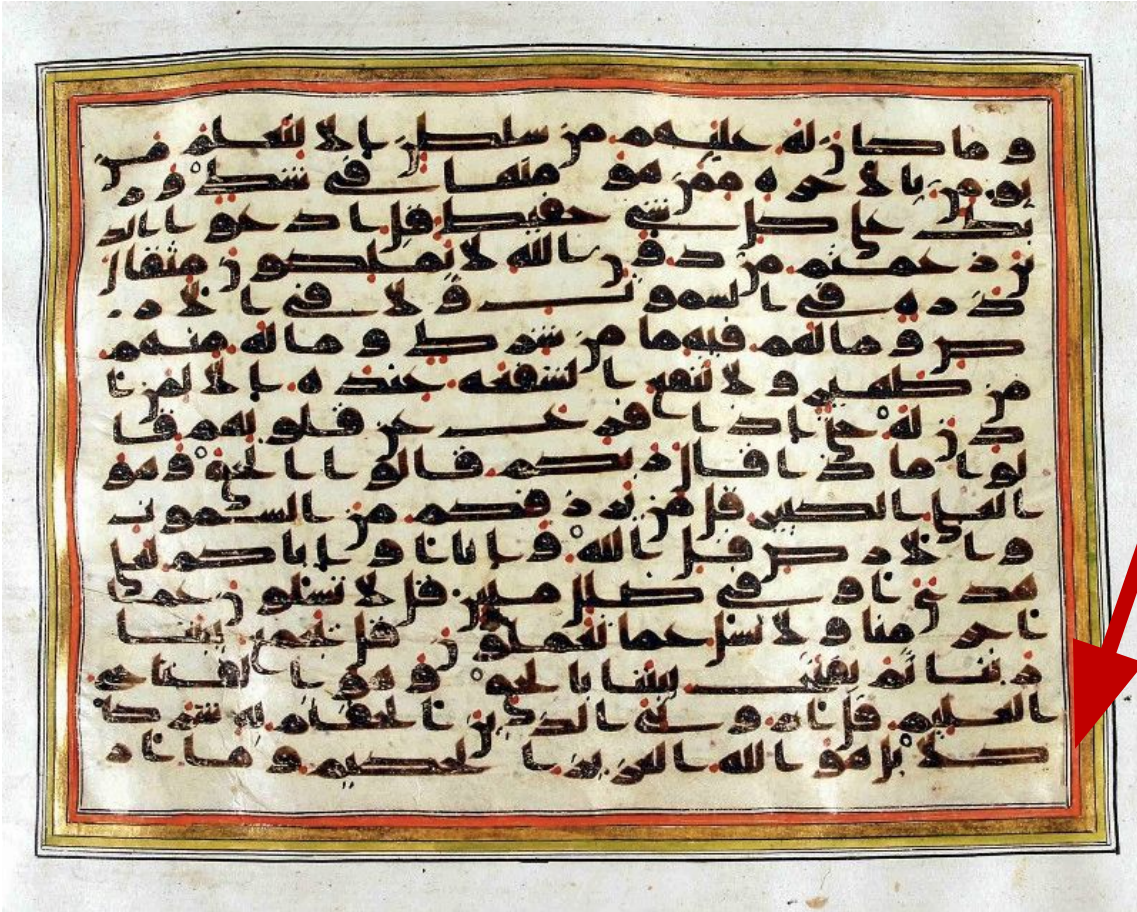 و ما كان له عليهم من سلطن الا لنعلم من
يومن بالاخره ممن هو منها في شك و ر
بك على كل شى حفيظ قل ادعوا الذ
ين زعمتم من دون الله لا يملكون مثقال
ذره في السموت ولا في الار
ض وما لهم فيهما من شرك و ما له منهم
من ظهير ولا تنفع الشفعه عنده الا لمن ا
ذن له حتى اذا فزع عن قلوبهم قا
لوا ماذا قال ربكم قالوا الحق وهو
العلى الكبير قل من يرزقكم من السموت
والارض قل الله وانا او اياكم لعلى
هدى او في ضلل مبين قل لا تسلون عما
اجرمنا ولا نسل عما تعملون قل يجمع بيننا
ربنا ثم يفتح بيننا بالحق وهو الفتاح
العليم قل اروني الذين الحقتم به شركا
كلا بل هو الله العزيز الحكيم وما ار